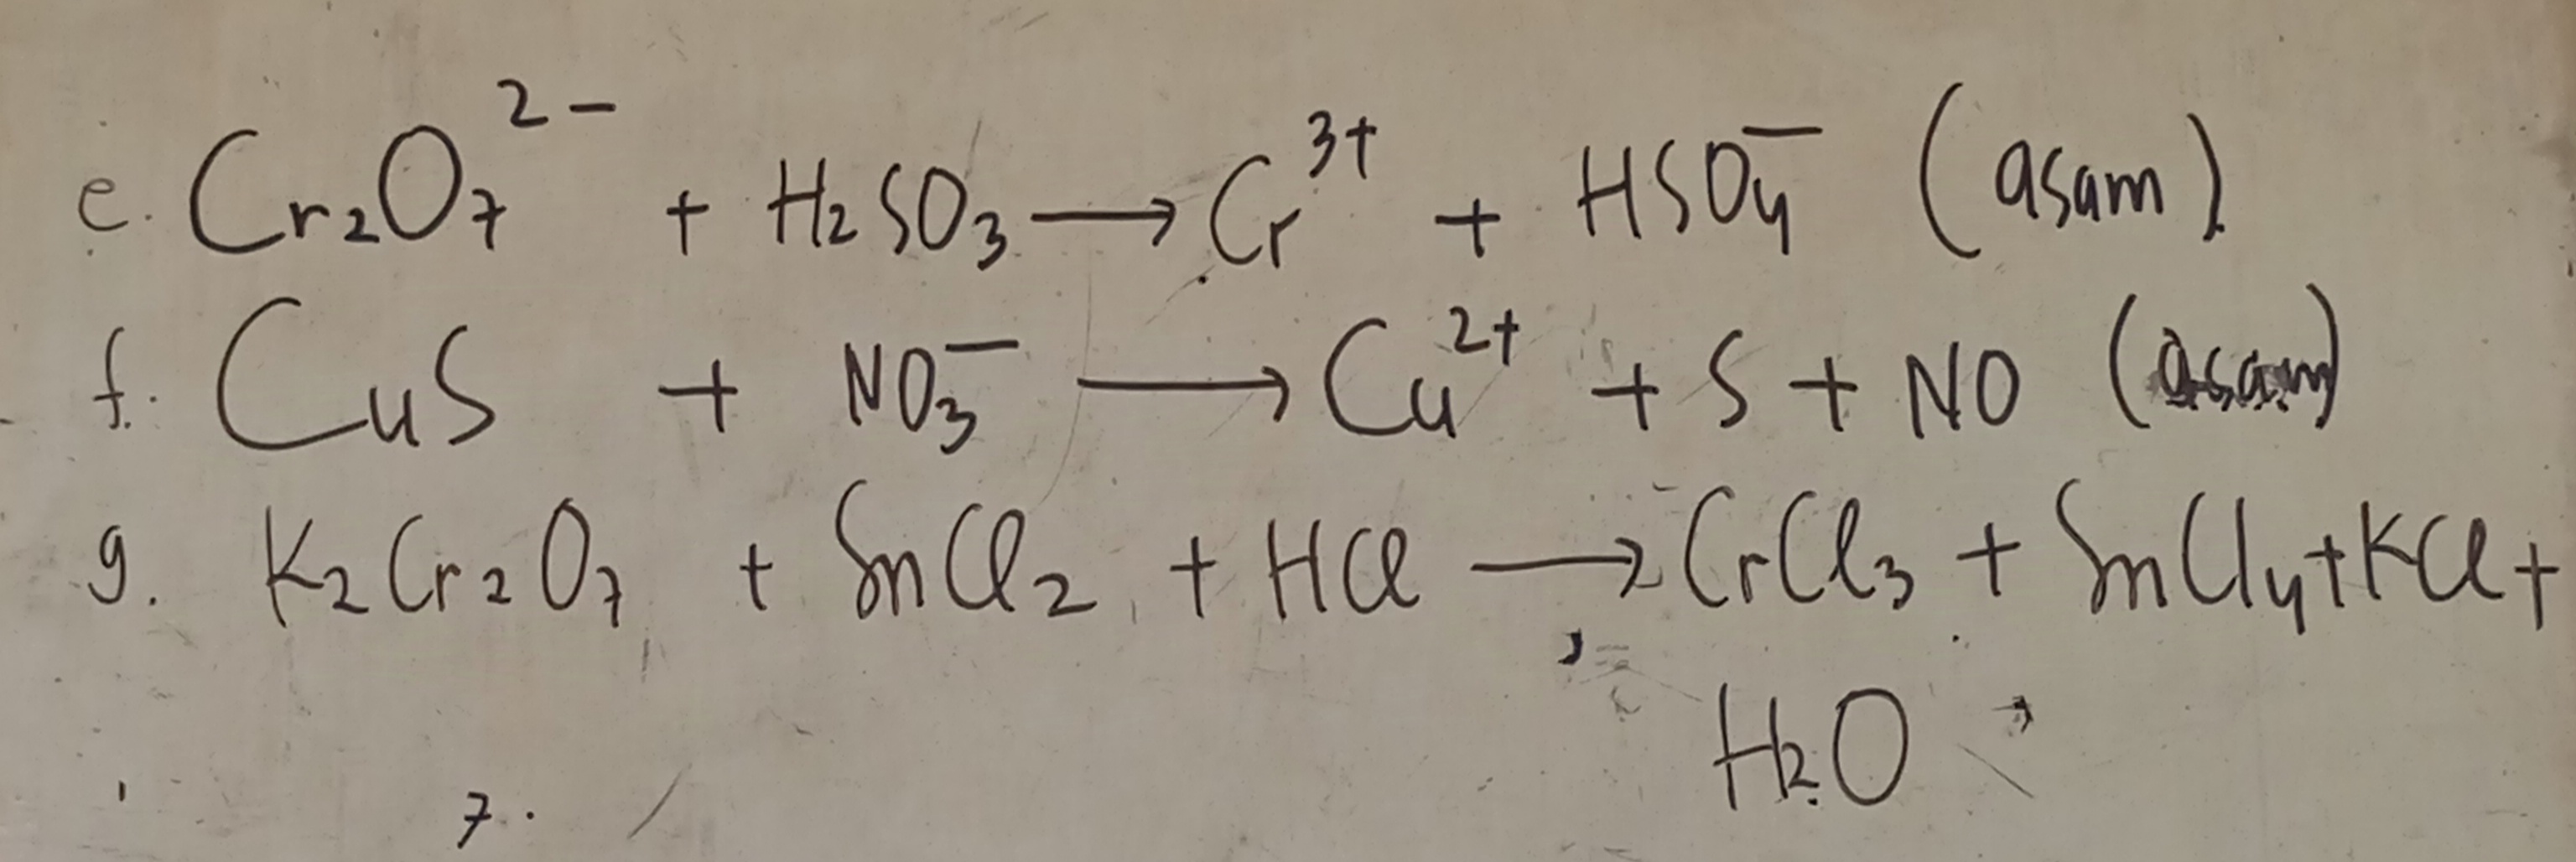 e. Cr₂O₇²⁻ + H₂SO₃ → Cr³⁺ + HSO₄⁻ (asam)
f. CuS + NO₃⁻ → Cu²⁺ + S + NO (asam)
g. K₂Cr₂O₇ + SnCl₂ + HCl → CrCl₃ + SnCl₄ + KCl +
H₂O
7.